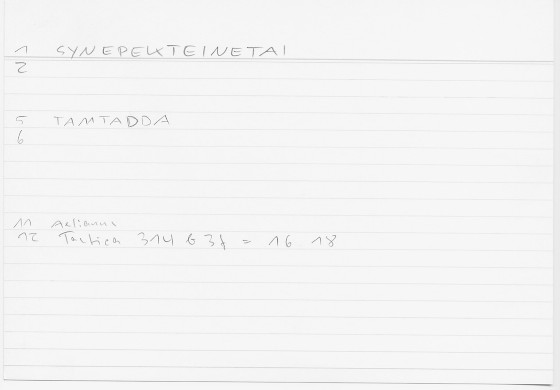 1 SYNEPEKTEINETAI
2
5 TAMTADDA
6
11 Aelianus
12 Tactica 314 b 37 = 16 18